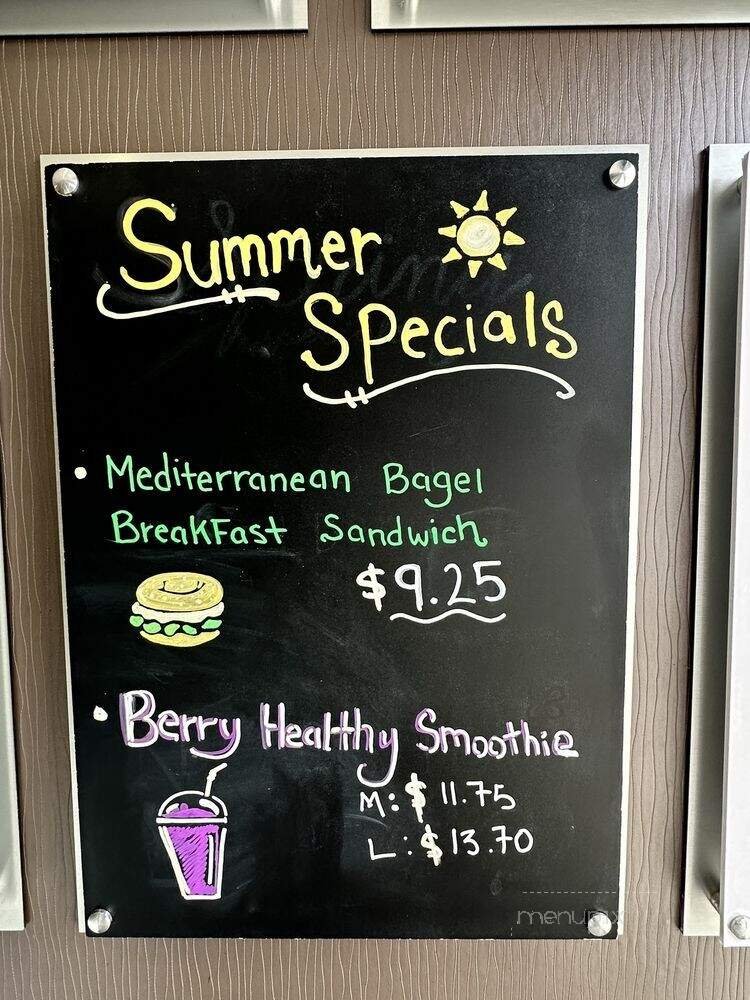 Summer
Specials
• Mediterranean Bagel
BreakFast Sandwich
$9.25
• Berry Healthy Smoothie
M: $11.75
L: $13.70